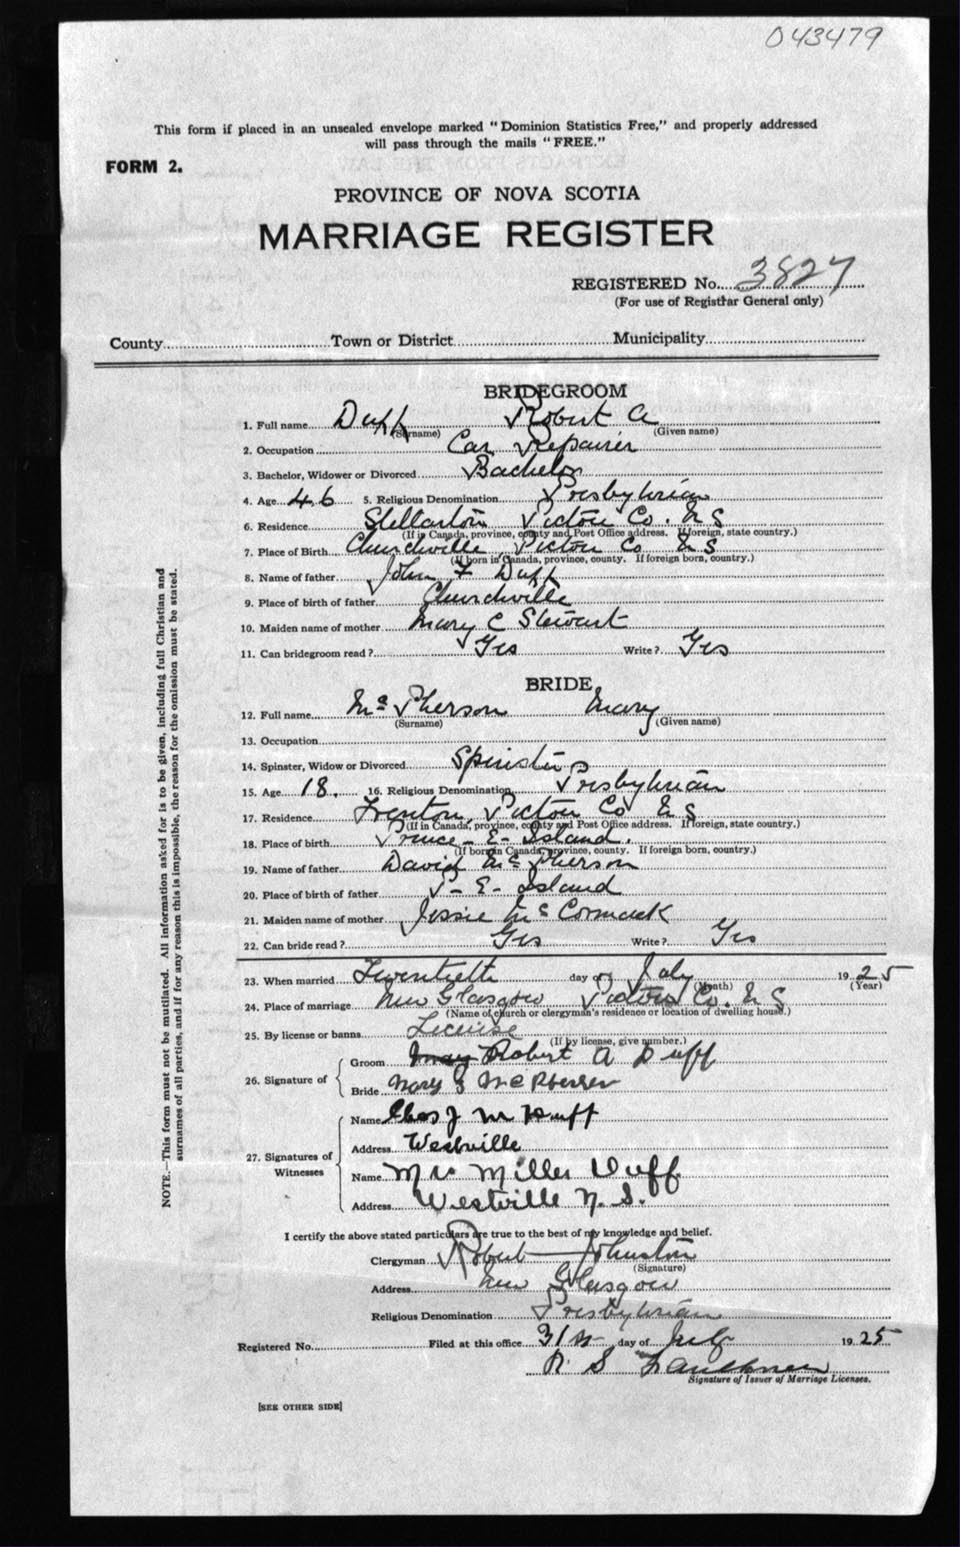 043479
This form if placed in an unsealed envelope marked "Dominion Statistics Free," and properly addressed
will pass through the mails "FREE."
FORM 2.
PROVINCE OF NOVA SCOTIA
MARRIAGE REGISTER
REGISTERED No. 3827
(For use of Registrar General only)
County Town or District Municipality
BRIDEGROOM
1. Full name Duff Robert A
(Surname) (Given name)
2. Occupation Car Repairer
3. Bachelor, Widower or Divorced Bachelor
4. Age 46 5. Religious Denomination Presbyterian
6. Residence Stellarton Pictou Co. N S
(If in Canada, province, county and Post Office address. If foreign, state country.)
7. Place of Birth Churchville Pictou Co N S
(If born in Canada, province, county. If foreign born, country.)
8. Name of father John F Duff
9. Place of birth of father Churchville
10. Maiden name of mother Mary C Stewart
11. Can bridegroom read? Yes Write? Yes
BRIDE
12. Full name McPherson Mary
(Surname) (Given name)
13. Occupation
14. Spinster, Widow or Divorced Spinster
15. Age 18. 16. Religious Denomination Presbyterian
17. Residence Trenton, Pictou Co N S
(If in Canada, province, county and Post Office address. If foreign, state country.)
18. Place of birth Prince - E - Island.
(If born in Canada, province, county. If foreign born, country.)
19. Name of father David McPherson
20. Place of birth of father P - E - Island
21. Maiden name of mother Jessie McCormack
22. Can bride read? Yes Write? Yes
23. When married Twentieth day of July 1925
(Month) (Year)
24. Place of marriage New Glasgow Pictou Co. N S
(Name of church or clergyman's residence or location of dwelling house.)
25. By license or banns License
(If by license, give number.)
26. Signature of
Groom Robert A Duff
Bride Mary J McPherson
27. Signatures of Witnesses
Name Duff
Address Westville
Name Mrs Miller Duff
Address Westville N. S.
I certify the above stated particulars are true to the best of my knowledge and belief.
Clergyman Robert Johnston
(Signature)
Address New Glasgow
Religious Denomination Presbyterian
Registered No. Filed at this office 31st day of July 1925
R. S. Faulkner
Signature of Issuer of Marriage Licenses.
[SEE OTHER SIDE]
NOTE.—This form must not be mutilated. All information asked for is to be given, including full Christian and
surnames of all parties, and if for any reason this is impossible, the reason for the omission must be stated.